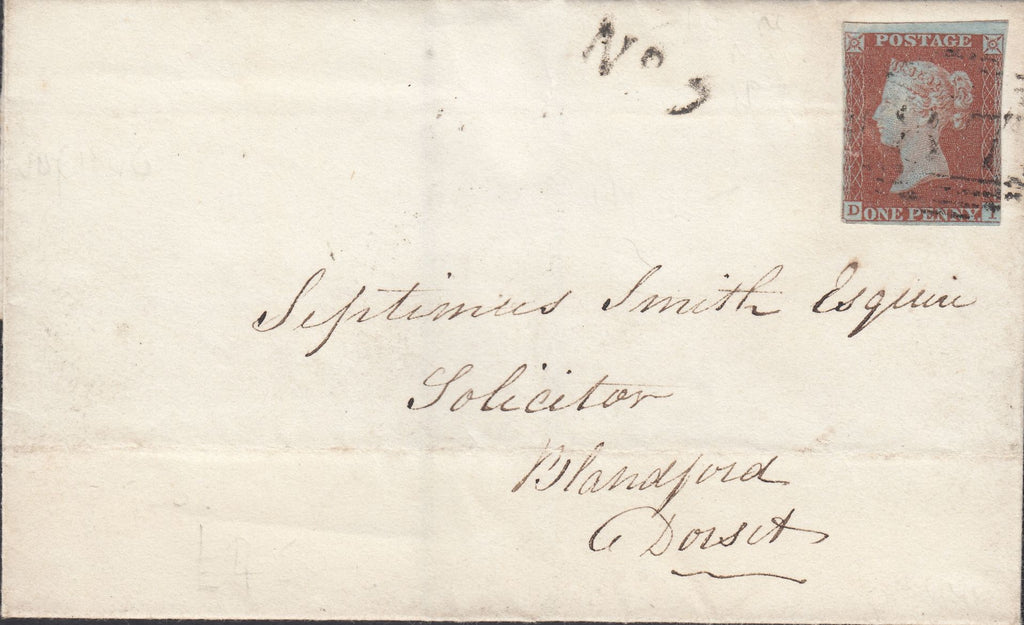 No 5
POSTAGE
D ONE PENNY I
Septimus Smith Esquire
Solicitor
Blandford
Dorset